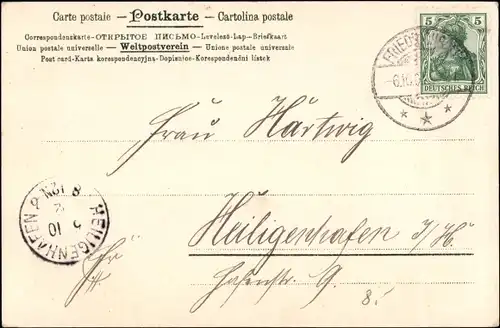 Carte postale – Postkarte – Cartolina postale
Correspondenzkarte–ОТКРЫТОЕ ПИСЬМО–Levelező-Lap–Briefkaart
Union postale universelle – Weltpostverein – Unione postale universale
Post card-Karta korespondencyjna-Dopisnice-Korespondenční lístek
5 5
DEUTSCHES REICH
Frau Hartwig
HEILIGENHAFEN
Heiligenhafen i/H.
Hafenstr. 9.
8.